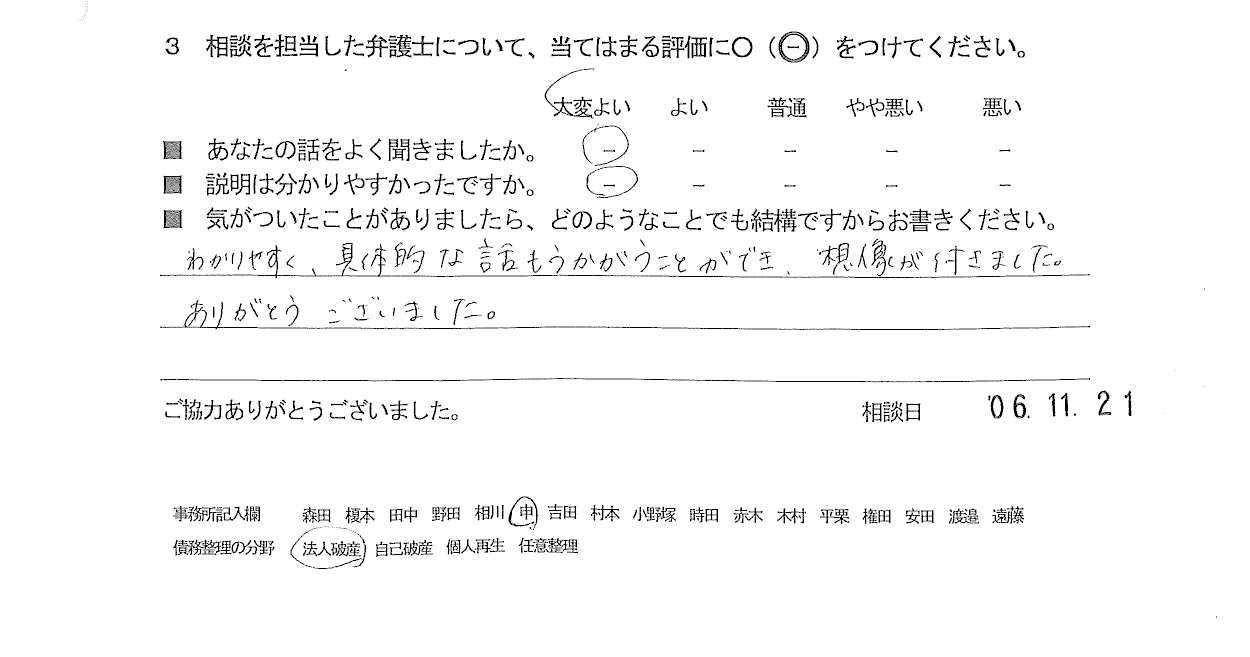 3 相談を担当した弁護士について、当てはまる評価に○(㊀)をつけてください。
大変よい よい 普通 やや悪い 悪い
■ あなたの話をよく聞きましたか。 － － － － －
■ 説明は分かりやすかったですか。 － － － － －
■ 気がついたことがありましたら、どのようなことでも結構ですからお書きください。
わかりやすく、具体的な話もうかがうことができ、想像が付きました。
ありがとうございました。
ご協力ありがとうございました。 相談日 '06.11.21
事務所記入欄 森田 榎本 田中 野田 相川 申 吉田 村本 小野塚 時田 赤木 木村 平栗 権田 安田 渡邉 遠藤
債務整理の分野 法人破産 自己破産 個人再生 任意整理